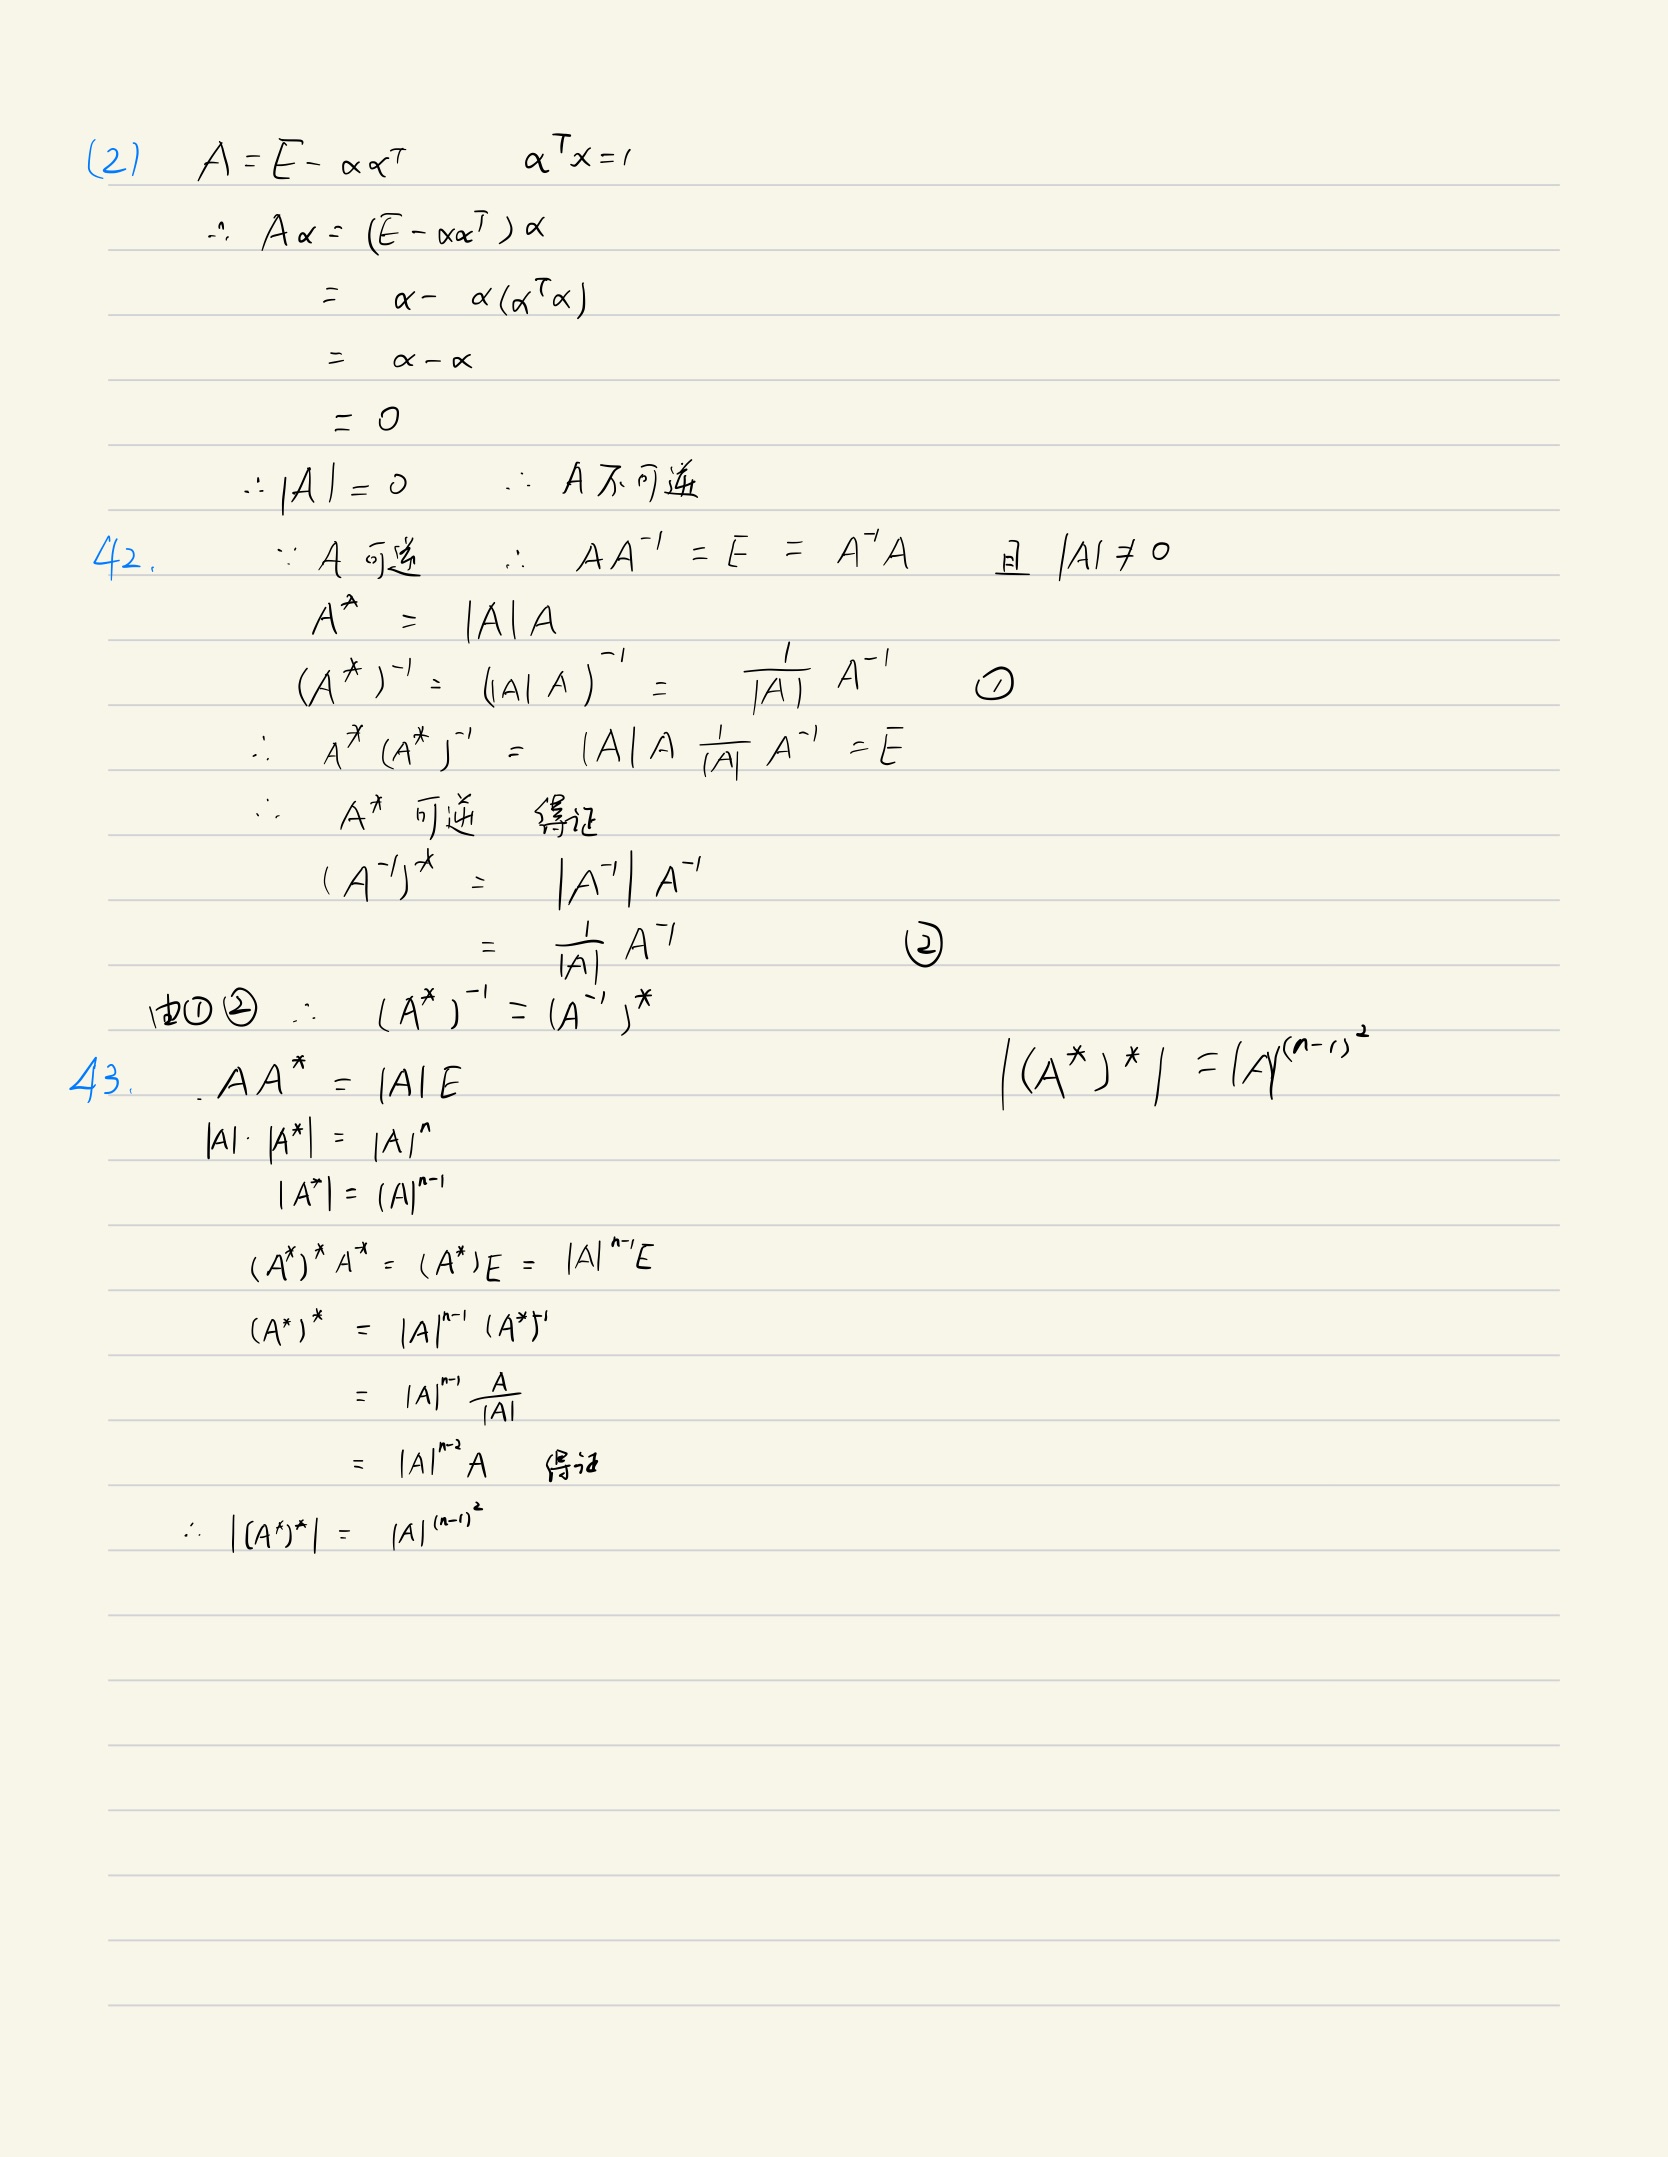 (2) A = E - αα^T α^T x = 1
∴ Aα = (E - αα^T)α
= α - α(α^T α)
= α - α
= 0
∴ |A| = 0 ∴ A 不可逆
42. ∵ A 可逆 ∴ AA^{-1} = E = A^{-1}A 且 |A| ≠ 0
A^* = |A| A
(A^*)^{-1} = (|A| A)^{-1} = \frac{1}{|A|} A^{-1} ①
∴ A^* (A^*)^{-1} = |A| A \frac{1}{|A|} A^{-1} = E
∴ A^* 可逆 得证
(A^{-1})^* = |A^{-1}| A^{-1}
= \frac{1}{|A|} A^{-1} ②
由①② ∴ (A^*)^{-1} = (A^{-1})^*
|(A^*)^*| = |A|^{(n-1)^2}
43. AA^* = |A| E
|A| · |A^*| = |A|^n
|A^*| = |A|^{n-1}
(A^*)^* A^* = (A^*)E = |A|^{n-1} E
(A^*)^* = |A|^{n-1} (A^*)^{-1}
= |A|^{n-1} \frac{A}{|A|}
= |A|^{n-2} A 得证
∴ |(A^*)^*| = |A|^{(n-1)^2}